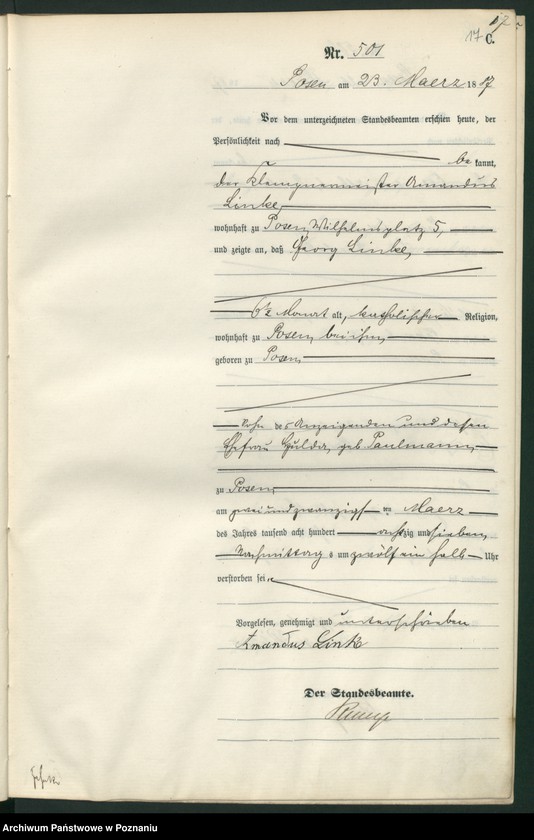 17
17 C.
Nr. 501
Posen am 23. Maerz 1887
Vor dem unterzeichneten Standesbeamten erschien heute, der
Persönlichkeit nach
be kannt,
der Klempnermeister Amandus
Linke,
wohnhaft zu Posen, Wilhelmsplatz 5,
und zeigte an, daß Georg Linke,
6½ Monat alt, katholischer Religion,
wohnhaft zu Posen, bei ihm,
geboren zu Posen,
Sohn des Anzeigenden und dessen
Ehefrau Hulda, geb. Paulmann,
zu Posen,
am zweiundzwanzigsten Maerz
des Jahres tausend acht hundert achtzig und sieben,
Nachmittags um zwölf ein halb Uhr
verstorben sei.
Vorgelesen, genehmigt und unterschrieben
Amandus Linke
Der Standesbeamte.
Archiwum Państwowe w Poznaniu